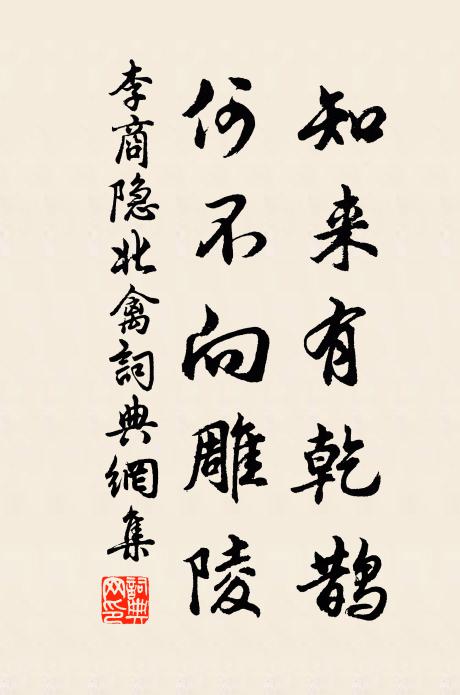 知来有乾鵲
何不向雕陵
李商隐北禽詞典網集
詞典网印